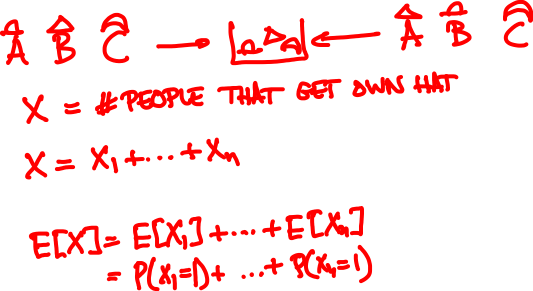 A B C → ← A B C
X = # PEOPLE THAT GET OWN HAT
X = X₁ + ... + Xₙ
E[X] = E[X₁] + ... + E[Xₙ]
= P(X₁=1) + ... + P(Xₙ=1)